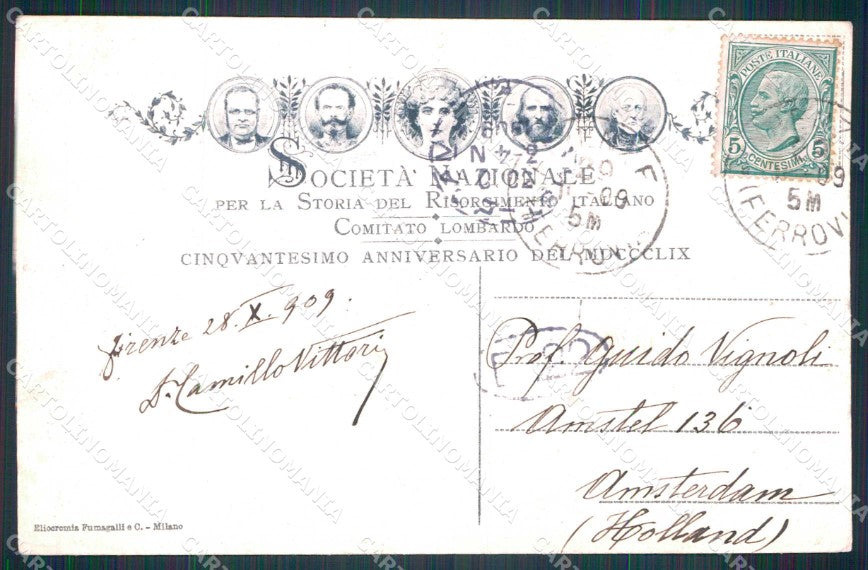 POSTE ITALIANE
5 CENTESIMI 5
SOCIETÀ NAZIONALE
PER LA STORIA DEL RISORGIMENTO ITALIANO
COMITATO LOMBARDO
CINQVANTESIMO ANNIVERSARIO DEL MDCCCLIX
09
5M
(FERROV
09
5M
Firenze 28.X.909.
Dr. Camillo Vittari
Prof. Guido Vignoli
Amstel 136
Amsterdam
(Holland)
Eliocromia Fumagalli e C. - Milano
CARTOLINOMANIA